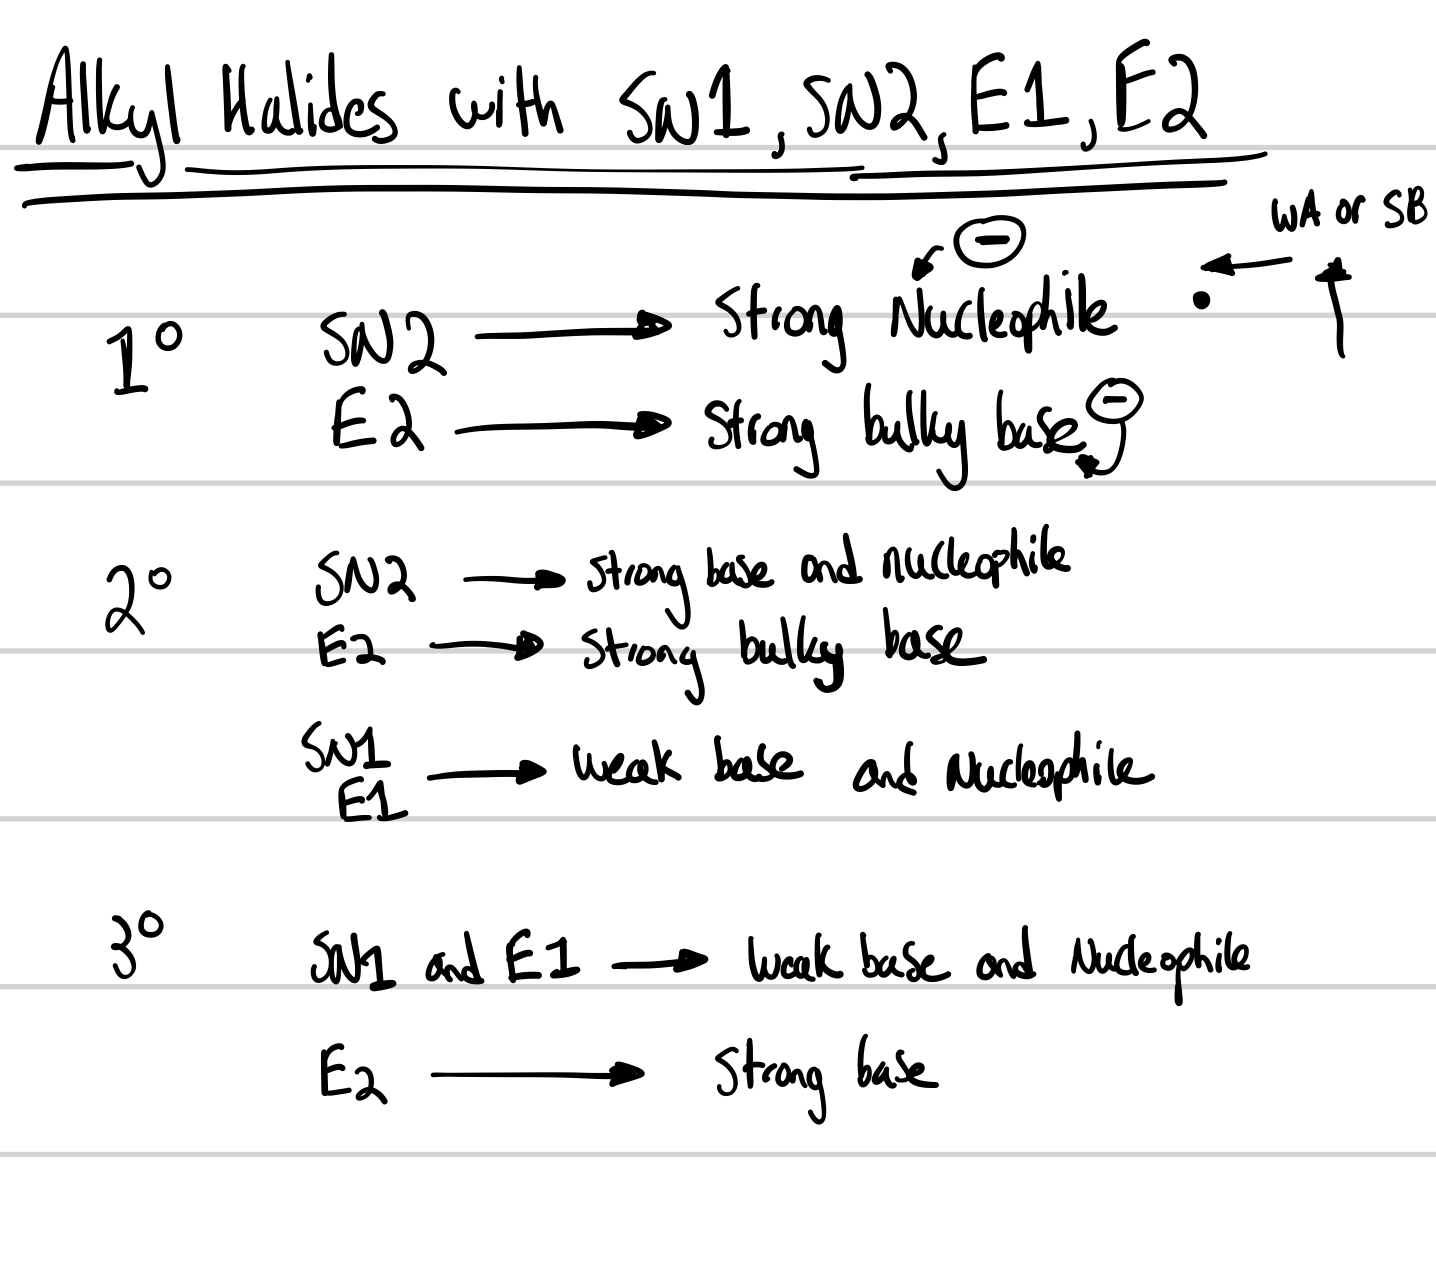 Alkyl Halides with SN1, SN2, E1, E2
WA or SB
⊖
1° SN2 → Strong Nucleophile •
E2 → Strong bulky base ⊖
2° SN2 → Strong base and nucleophile
E2 → Strong bulky base
SN1
E1 → Weak base and Nucleophile
3° SN1 and E1 → Weak base and Nucleophile
E2 → Strong base